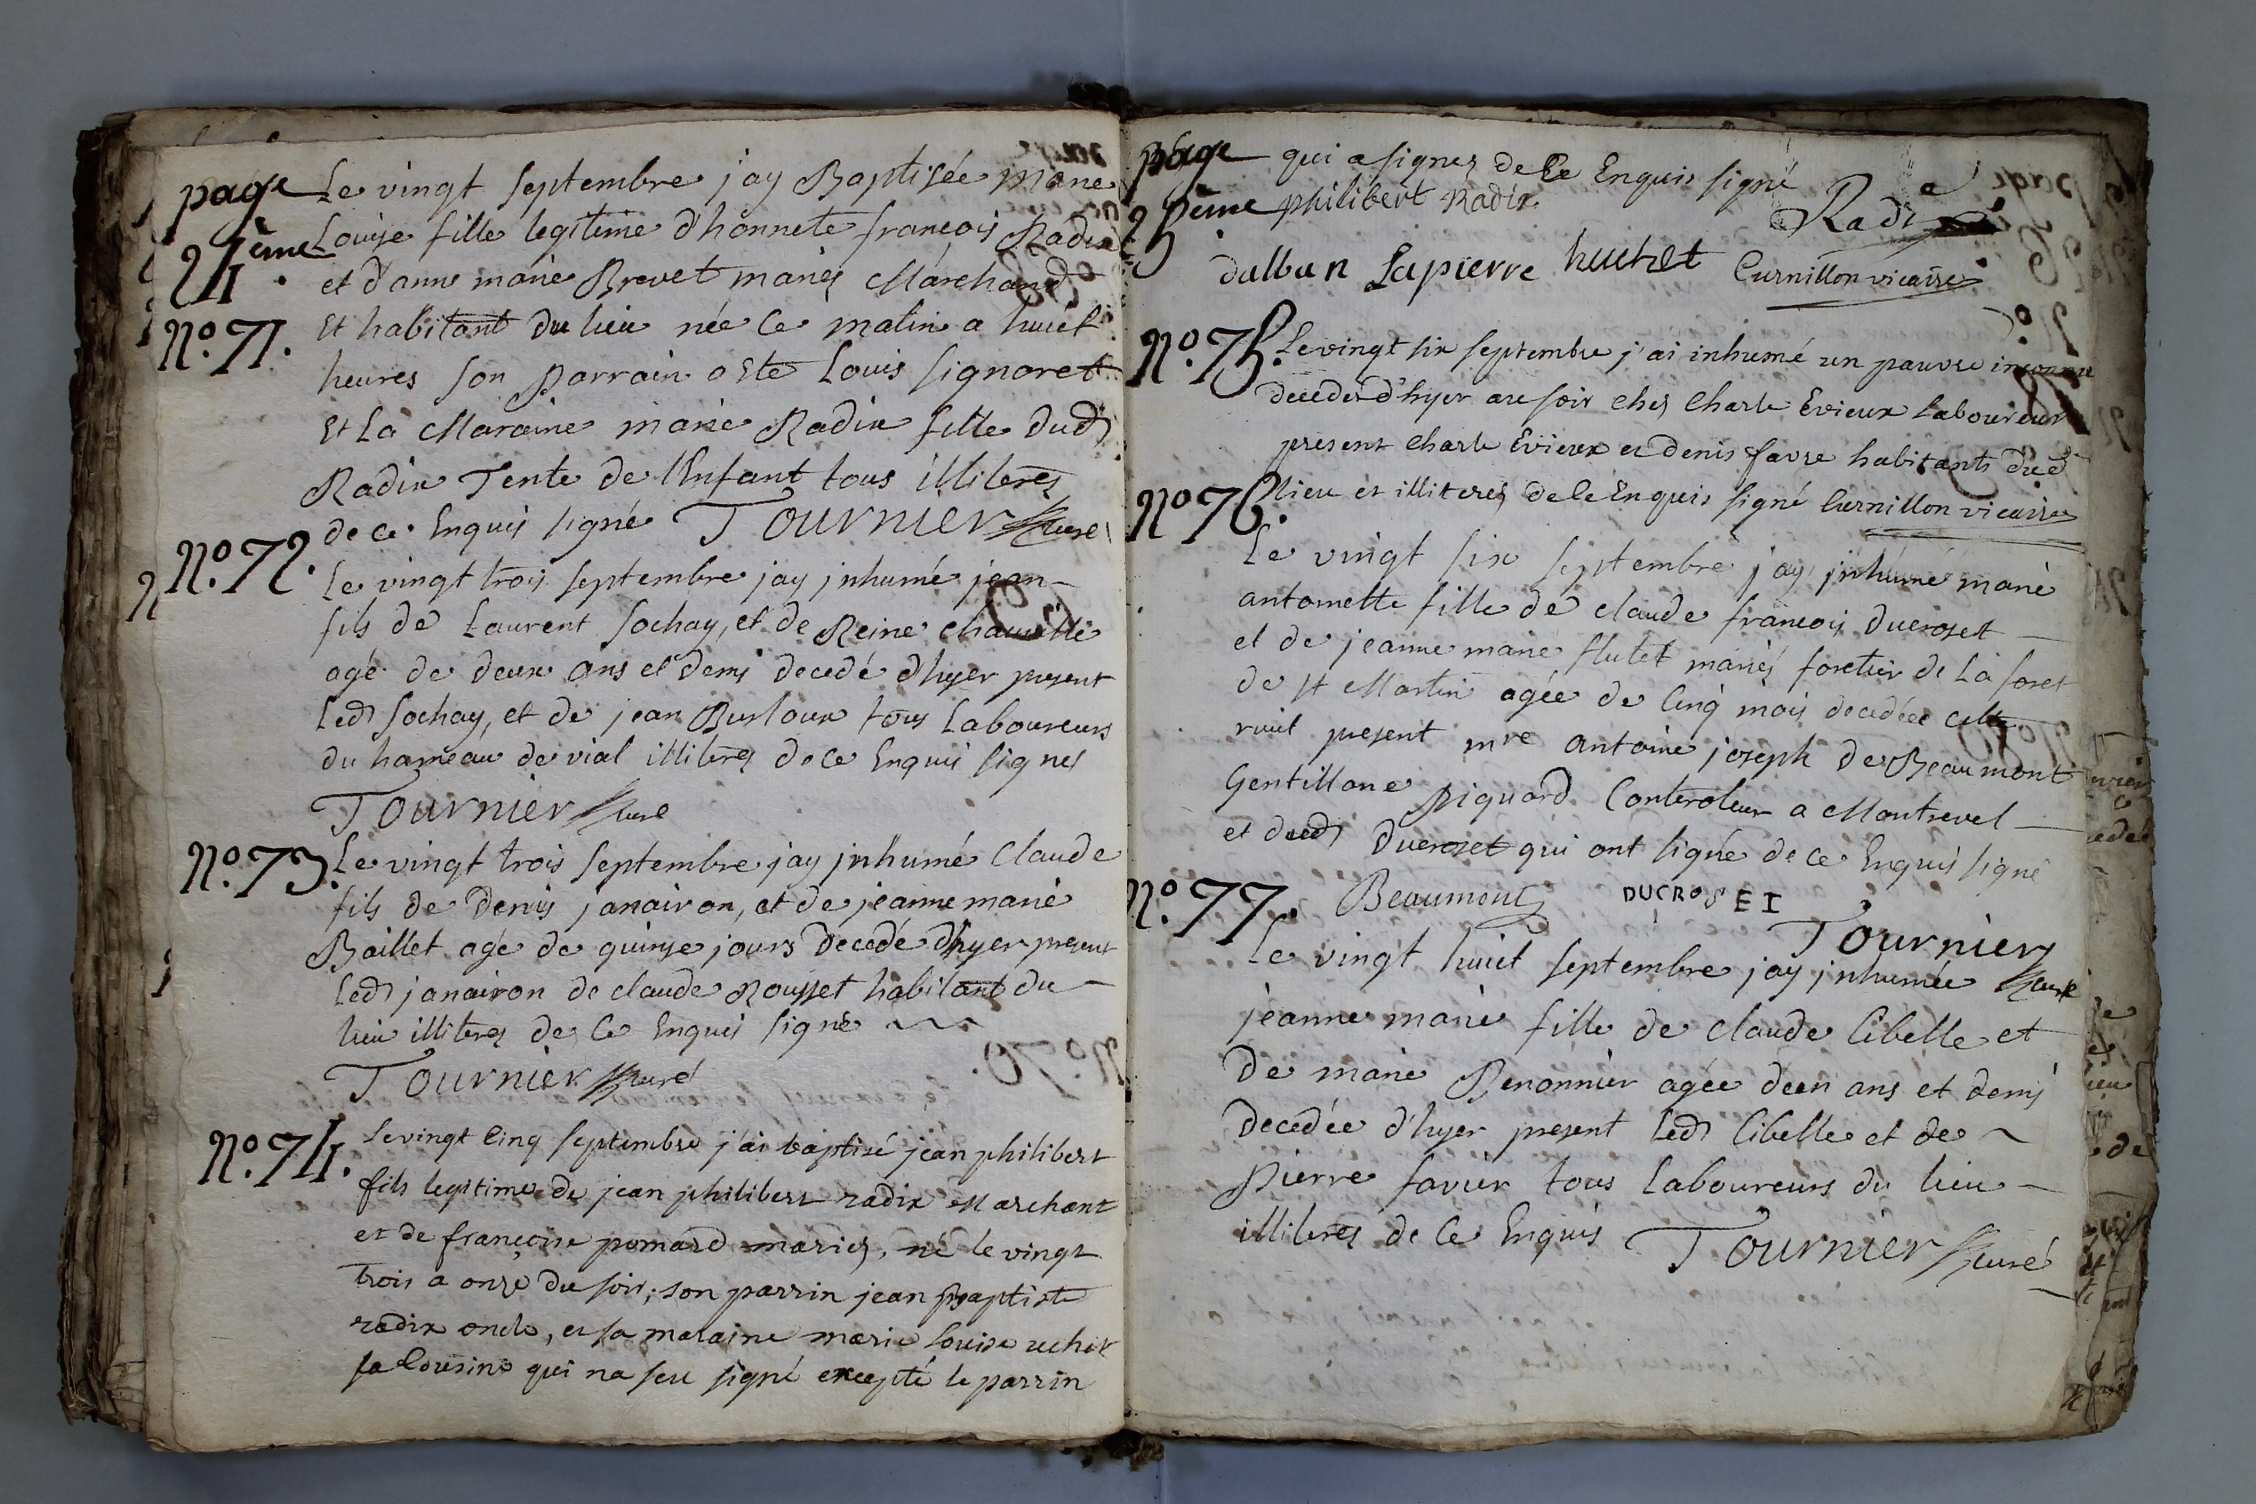 page
24ème.
Le vingt septembre jay Baptisée marie
Louise fille legitime d'honnete francois Radix
et d'anne marie Brevet mariés Marchand
Nº. 71. Et habitant du lieu née Ce matin a huict
heures son parrain a Eté Louis signoret
Et La Maraine marie Radix fille dud
Radix Tente de l'Enfant tous illiteres
de ce Enquis signé Tournier Curé
Nº. 72. Le vingt trois septembre jay jnhumé jean
fils de Laurent Sochay, et de Reine
agé de deux ans et demj decedé d'hyer present
led Sochay, et de jean Burloux tous Laboureurs
du hameau de vial illiteres de ce Enquis signes
Tournier Curé
Nº. 73. Le vingt trois septembre jay jnhumé Claude
fils de Denis janairon, et de jeanne marie
Baillet agé de quinze jours Decedé d'hyer present
led janairon de claude Rousset habitant du
lieu illiteres de Ce Enquis signé
Tournier Curé
Nº. 74. Le vingt Cinq septembre j'ai baptisé jean philibert
fils legitime de jean philibert radix Marchant
et de françoise pomard mariés, né le vingt
trois a onze du soir; son parrin jean Baptiste
radix oncle, et sa maraine marie louise uchet
sa Cousine qui na seu signé excepté le parrin
page
25eme
qui a signes de Ce Enquis signé
philibert Radix. Radix
dalban Lapierre huchet Curnillon vicaire
Nº. 75. Le vingt six septembre j'ai inhumé un pauvre inconnu
decedé d'hyer au soir ches Charle Evieux Laboureur
present Charle Evieux et denis favre habitants dud
Nº. 76. lieu et illiterés de Ce Enquis signé Curnillon vicaire
Le vingt six septembre jay jnhumé marie
antoinette fille de claude francois Ducroset
et de jeanne marie flutet mariés foretier de La foret
de St Martin agée de Cinq mois decedée cette
nuit present mre antoine joseph De Beaumont
Gentillome piquard Controleur a Montrevel
et dud Ducroset qui ont signé de ce Enquis signé
Nº. 77. Beaumont DUCROSEI
Tournier Curé
Le vingt huict septembre jay jnhumée
jeanne marie fille de claude Cibelle et
De marie Renonnier agée deen ans et demj
Decedée d'hyer present led Cibelle et de
pierre favier tous Laboureurs du lieu
illiteres de Ce Enquis Tournier Curé